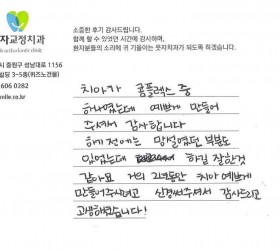 자교정치과
orthodontic clinic
시 중원구 성남대로 1156
빌딩 3-5층(퀴즈노건물)
606 0282
mile.co.kr
소중한 후기 감사드립니다.
함께 할 수 있었던 시간에 감사하며,
환자분들의 소리에 귀 기울이는 뜻자치과가 되도록 하겠습니다.
치아가 콤플렉스 중
하나였는데 예쁘게 만들어
주셔서 감사합니다
하기전에는 망설였던 부분도
있었는데 하길 잘한것
같아요 거의 2년동안 치아 예쁘게
만들어주시려고 신경써주셔서 감사드리고
고생하셨습니다!